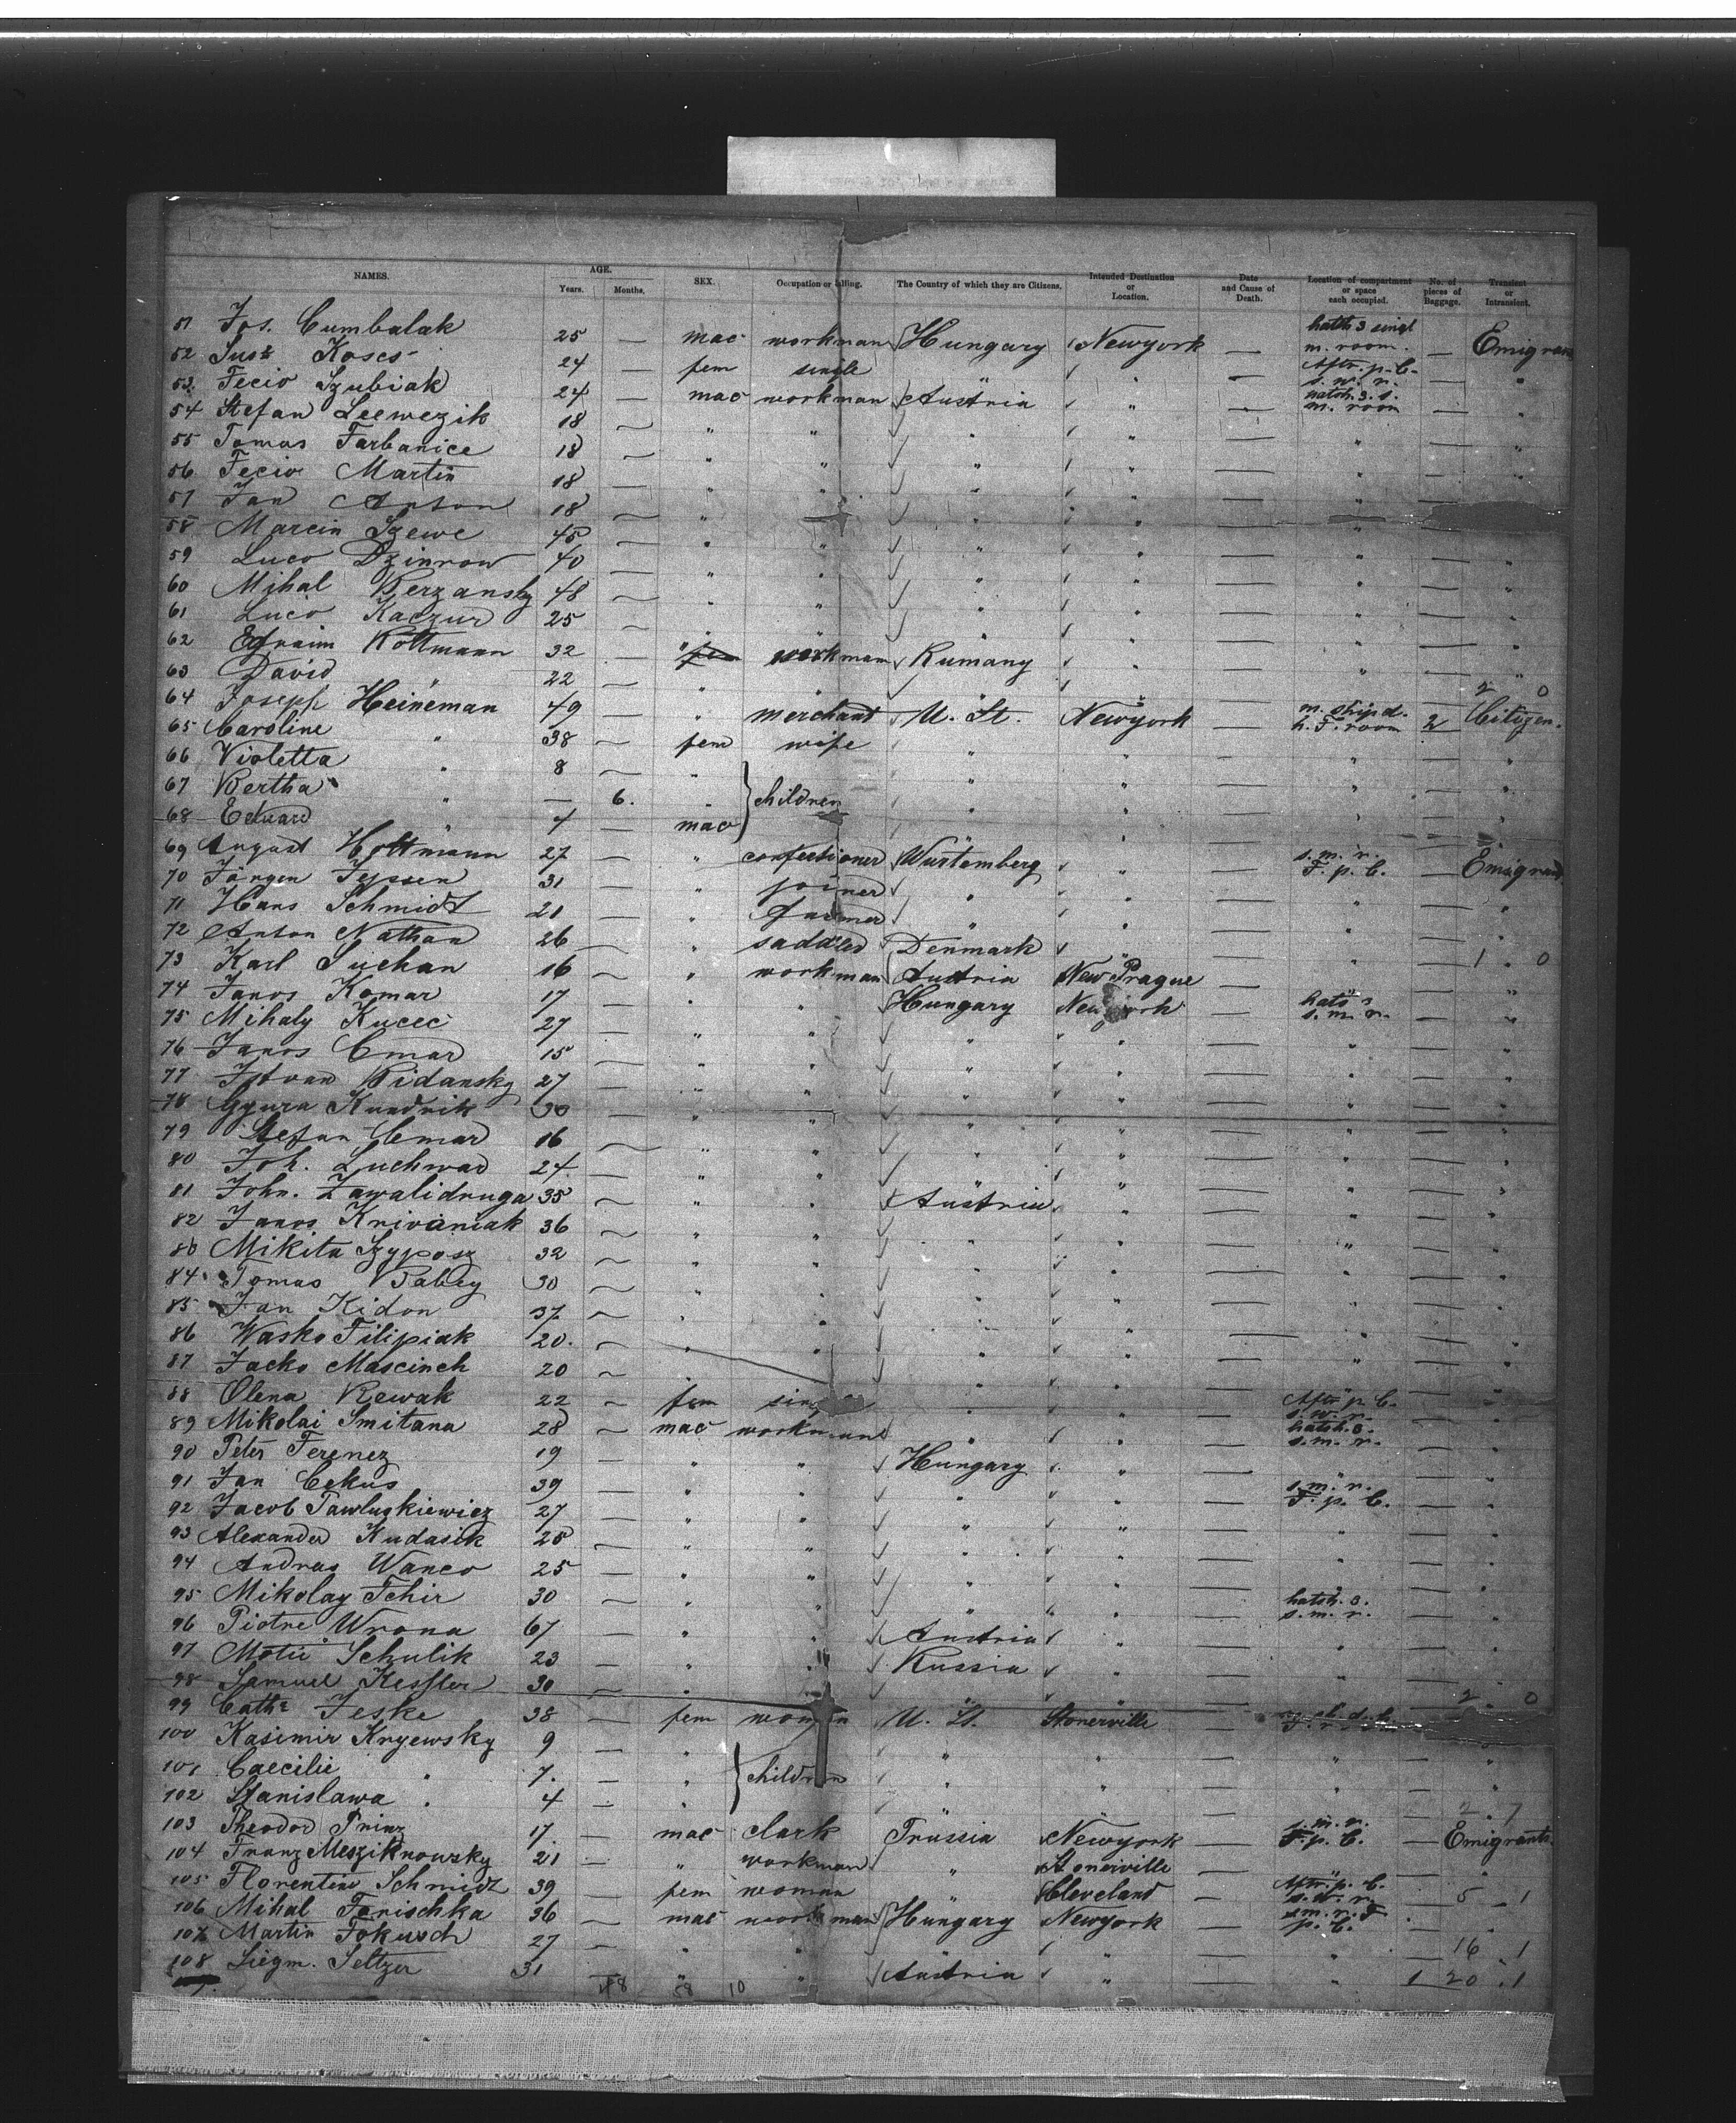 NAMES. AGE. Years. Months. SEX. Occupation or calling. The Country of which they are Citizens. Intended Destination or Location. Date and Cause of Death. Location of compartment or space each occupied. No. of pieces of Baggage. Transient or Intransient.
51 Jos. Cumbalak 25 — mac workman Hungary Newyork — hatch 3 singl m. room. — Emigran
52 Sus: Koscs 24 — fem single " " — Aftr. p. C. s. w. r. — "
53. Fecio Szubiak 24 — mac workman Austria " — hatch 3. s. m. room — "
54 Stefan Leewezik 18 — " " " " — " — "
55 Tomas Farbanice 18 — " " " " — " — "
56. Fecio Martin 18 — " " " " — " — "
57 Jan Anton 18 — " " " " — " — "
58 Marcin Szewc 45 — " " " " — " — "
59 Luco Dzinrow 40 — " " " " — " — "
60 Mihal Kerzansky 48 — " " " " — " — "
61 Lucio Kaczur 25 — " " " " — " — "
62 Efraim Kottmann 32 — " workman Rumany " — " — "
63 David " 22 — " " " " — " — " 2 0
64 Joseph Heineman 49 — " merchant U. St. Newyork — m. ship d. h. F. room 2 Citizen.
65 Caroline " 38 — fem wife " " — " — "
66 Violetta " 8 — " children " " — " — "
67 Bertha " — 6. " " " — " — "
68 Eduard " 4 — mac " " — " — "
69 August Hottmann 27 — " confectioner Würtemberg " — s. m. r. F. p. C. — Emigran
70 Jörgen Jepsen 31 — " joiner " " — " — "
71 Hans Schmidt 21 — " farmer " " — " — "
72 Anton Nathan 26 — " saddler Denmark " — " — " 1 . 0
73 Karl Suchan 16 — " workman Austria New Prague — " — "
74 Janos Komar 17 — " " Hungary Newyork — hats 3 s. m. r. — "
75 Mihaly Kucec 27 — " " " " — " — "
76 Janos Cmar 15 — " " " " — " — "
77 Istvan Ridansky 27 — " " " " — " — "
78 Gyura Kundrik 30 — " " " " — " — "
79 Stefan Cmar 16 — " " " " — " — "
80 Joh. Luchwad 24 — " " " " — " — "
81 John. Zawalidruga 35 — " " Austria " — " — "
82 Janos Krivaniak 36 — " " " " — " — "
83 Mikita Szyposz 32 — " " " " — " — "
84 Tomas Babey 30 — " " " " — " — "
85 Jan Kidon 37. — " " " " — " — "
86 Wasko Filipiak 20. — " " " " — " — "
87 Jacko Mascinch 20 — " " " " — " — "
88 Olena Rewak 22 — fem " " — Aftr p. C. s. w. r. — "
89 Mikolai Smitana 28 — mac workman " " — hatch. 3. s. m. r. — "
90 Peter Ferencz 19 — " " Hungary " — " — "
91 Jan Cekus 39 — " " " " — s. m. r. F. p. C. — "
92 Jacob Pawluskiewicz 27 — " " " " — " — "
93 Alexander Kudasik 25 — " " " " — " — "
94 Andras Wanco 25 — " " " " — " — "
95 Mikolay Tchir 30 — " " " " — hatch. 3. s. m. r. — "
96 Piotre Wrona 67 — " " Austria " — " — "
97 Motie Schulik 23 — " " Russia " — " — "
98 Samuel Kessler 30 — " " " " — " — " 2 . 0
99 Cath: Jeske 38 — fem woman U. St. Stonerville — —
100 Kasimir Kryewsky 9 — " children " " — " — "
101 Caecilie " 7. — " " " — " — "
102 Stanislawa " 4 — " " " — " — " 2 . 7
103 Theodor Prinz 17 — mac clark Prussia Newyork — s. m. r. F. p. C. — Emigrants
104 Franz Mesziknowsky 21 — " workman " Stonerville — " — "
105 Florentine Schmidt 39 — fem woman " Cleveland — Aftr. p. C. s. w. r. — " 5 – 1
106 Mihal Ferischka 36 — mac workman Hungary Newyork — s m. r. F p. C. — "
107 Martin Fokusch 27 — " " " " — " — " 16 . 1
108 Siegm. Seltzer 31 — " " Austria " — " 1 20 . 1
88 8 10